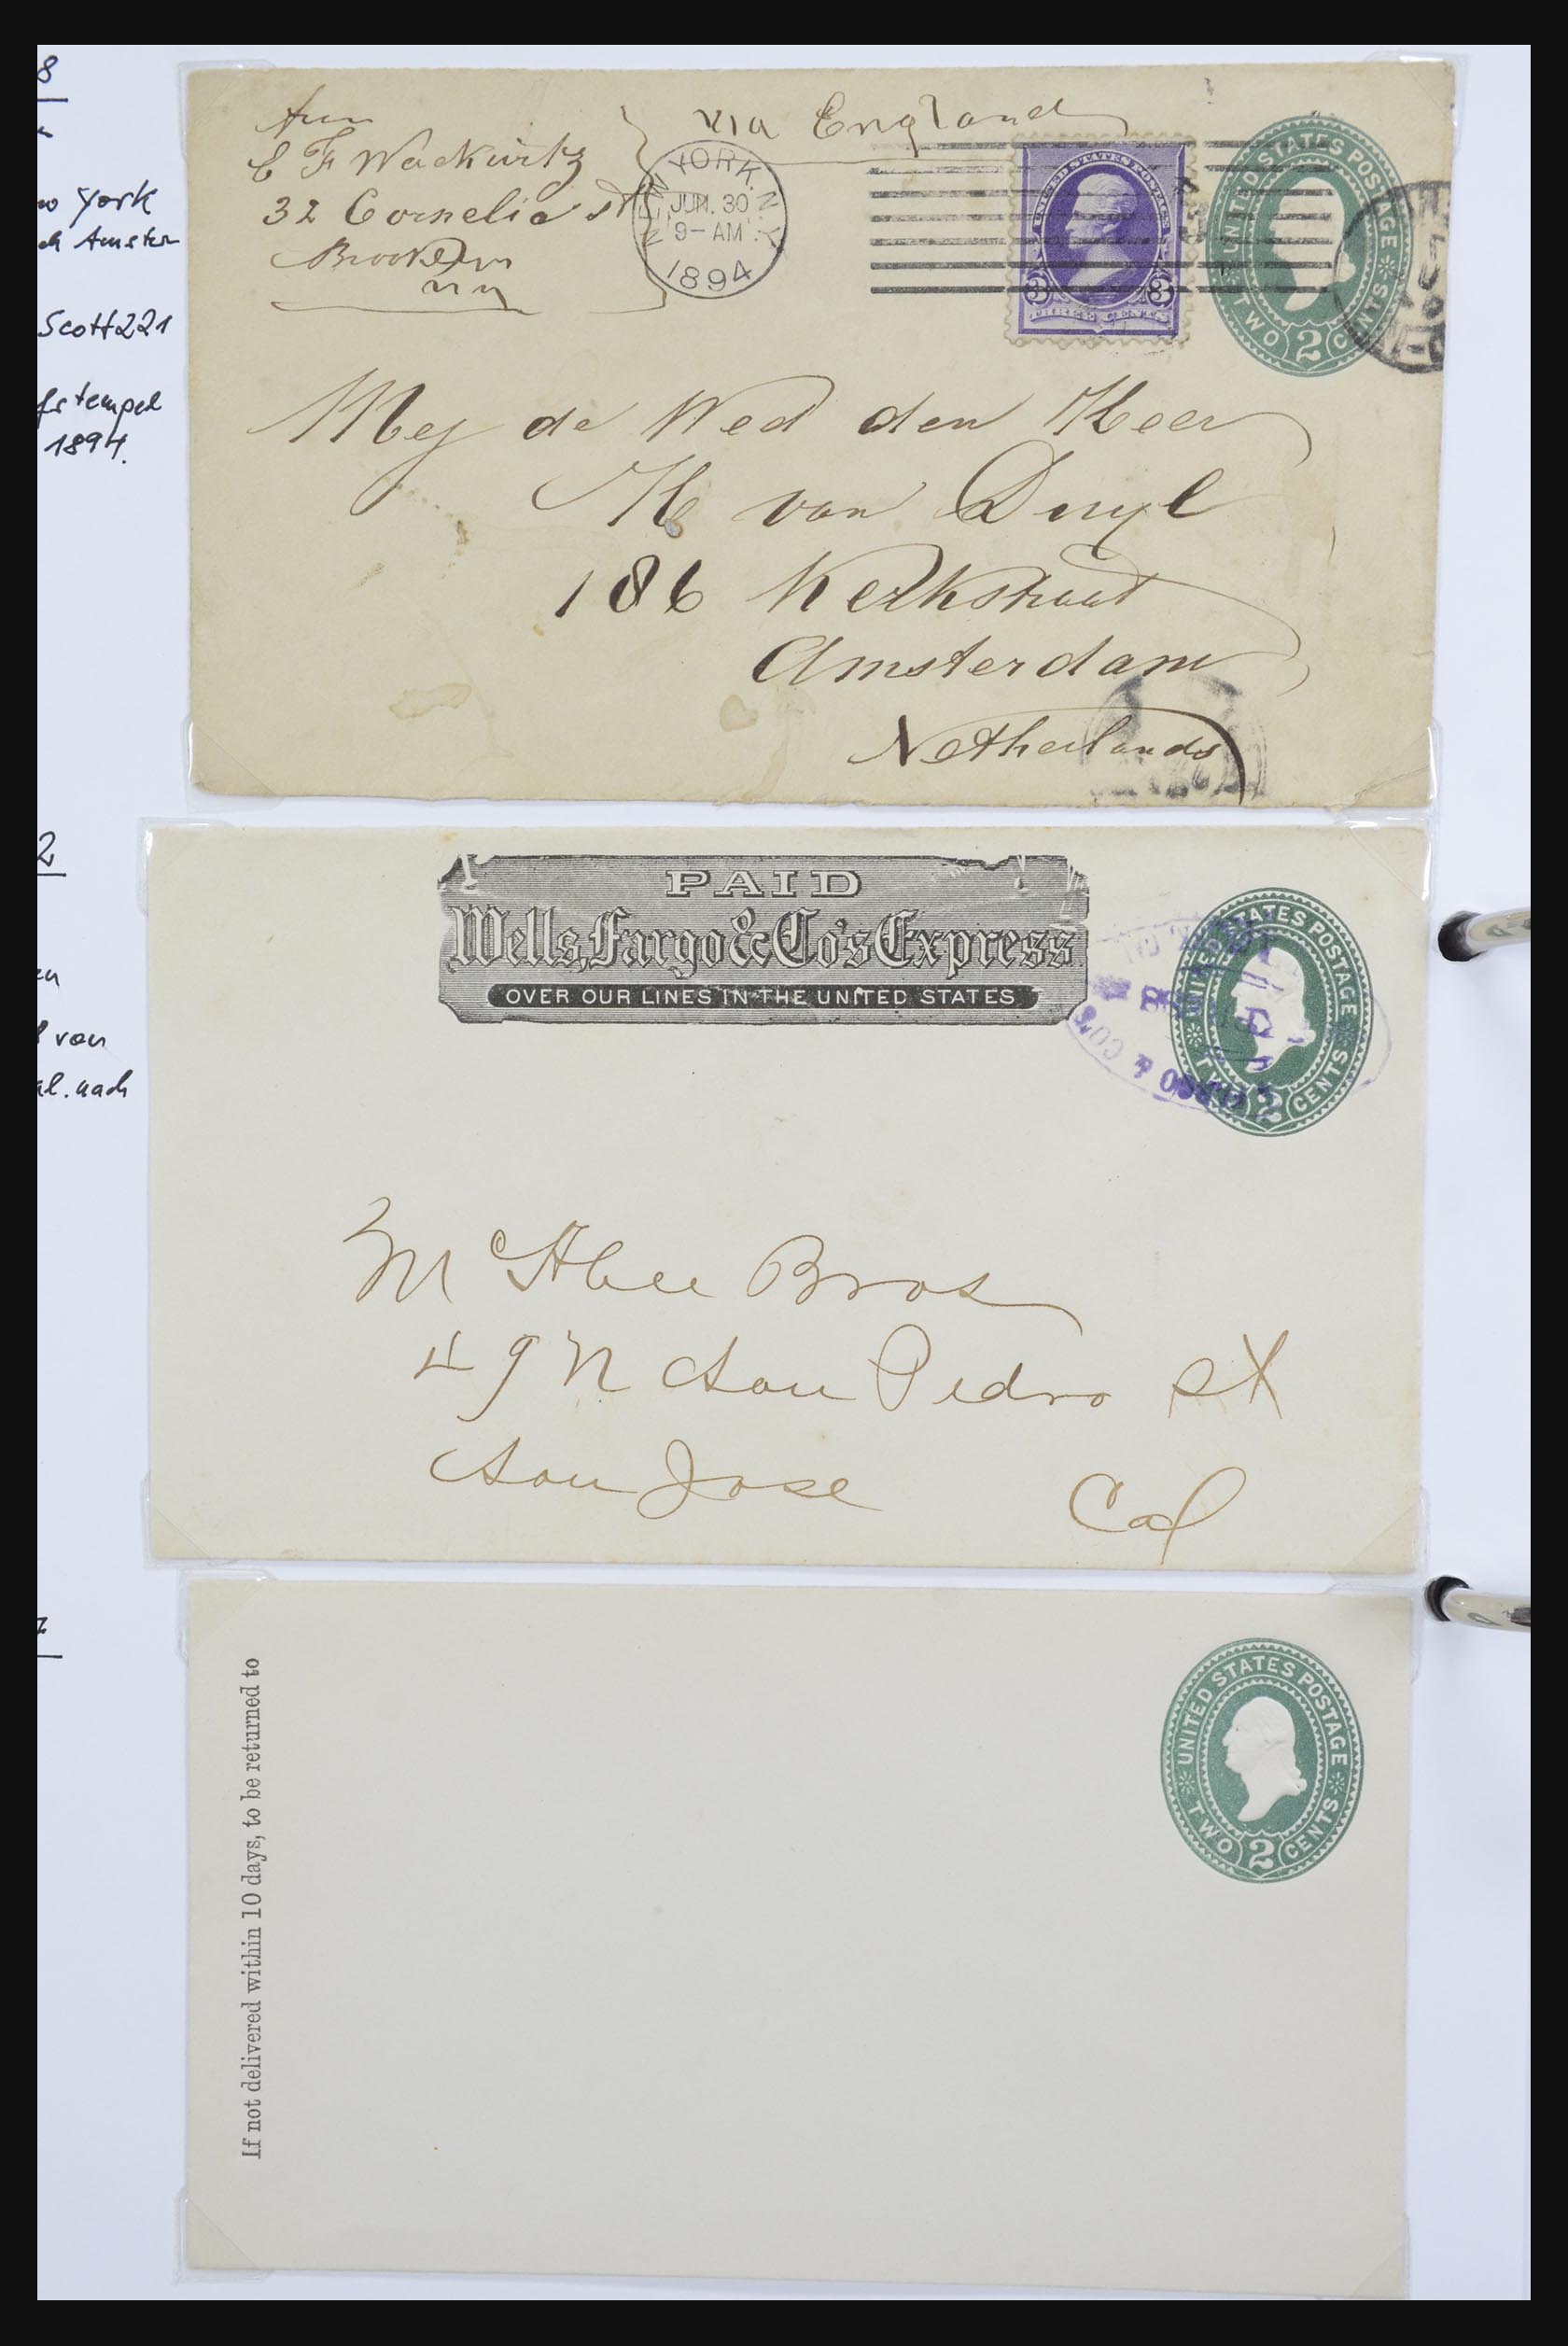 8
York
Amster
Scott 221
1894.
via England
C F Wackwitz
32 Cornelia st
Brooklyn
NY
NEW YORK, N.Y.
JUN. 30
9-AM
1894
UNITED STATES POSTAGE
3 3
UNITED STATES POSTAGE
TWO 2 CENTS
Mej de Wed den Heer
H van Duyl
186 Kerkstraat
Amsterdam
Netherlands
2
en
von
nach
PAID
Wells, Fargo & Co's Express
OVER OUR LINES IN THE UNITED STATES
UNITED STATES POSTAGE
TWO 2 CENTS
FARGO & CO'S
McAbee Bros
49 N San Pedro St
San Jose Cal
If not delivered within 10 days, to be returned to
UNITED STATES POSTAGE
TWO 2 CENTS